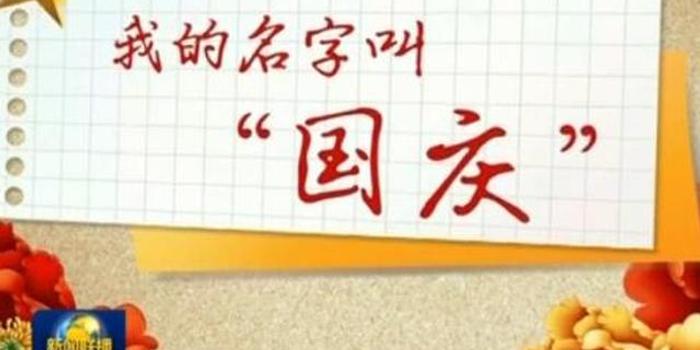 我的名字叫
“国庆”
新闻联播